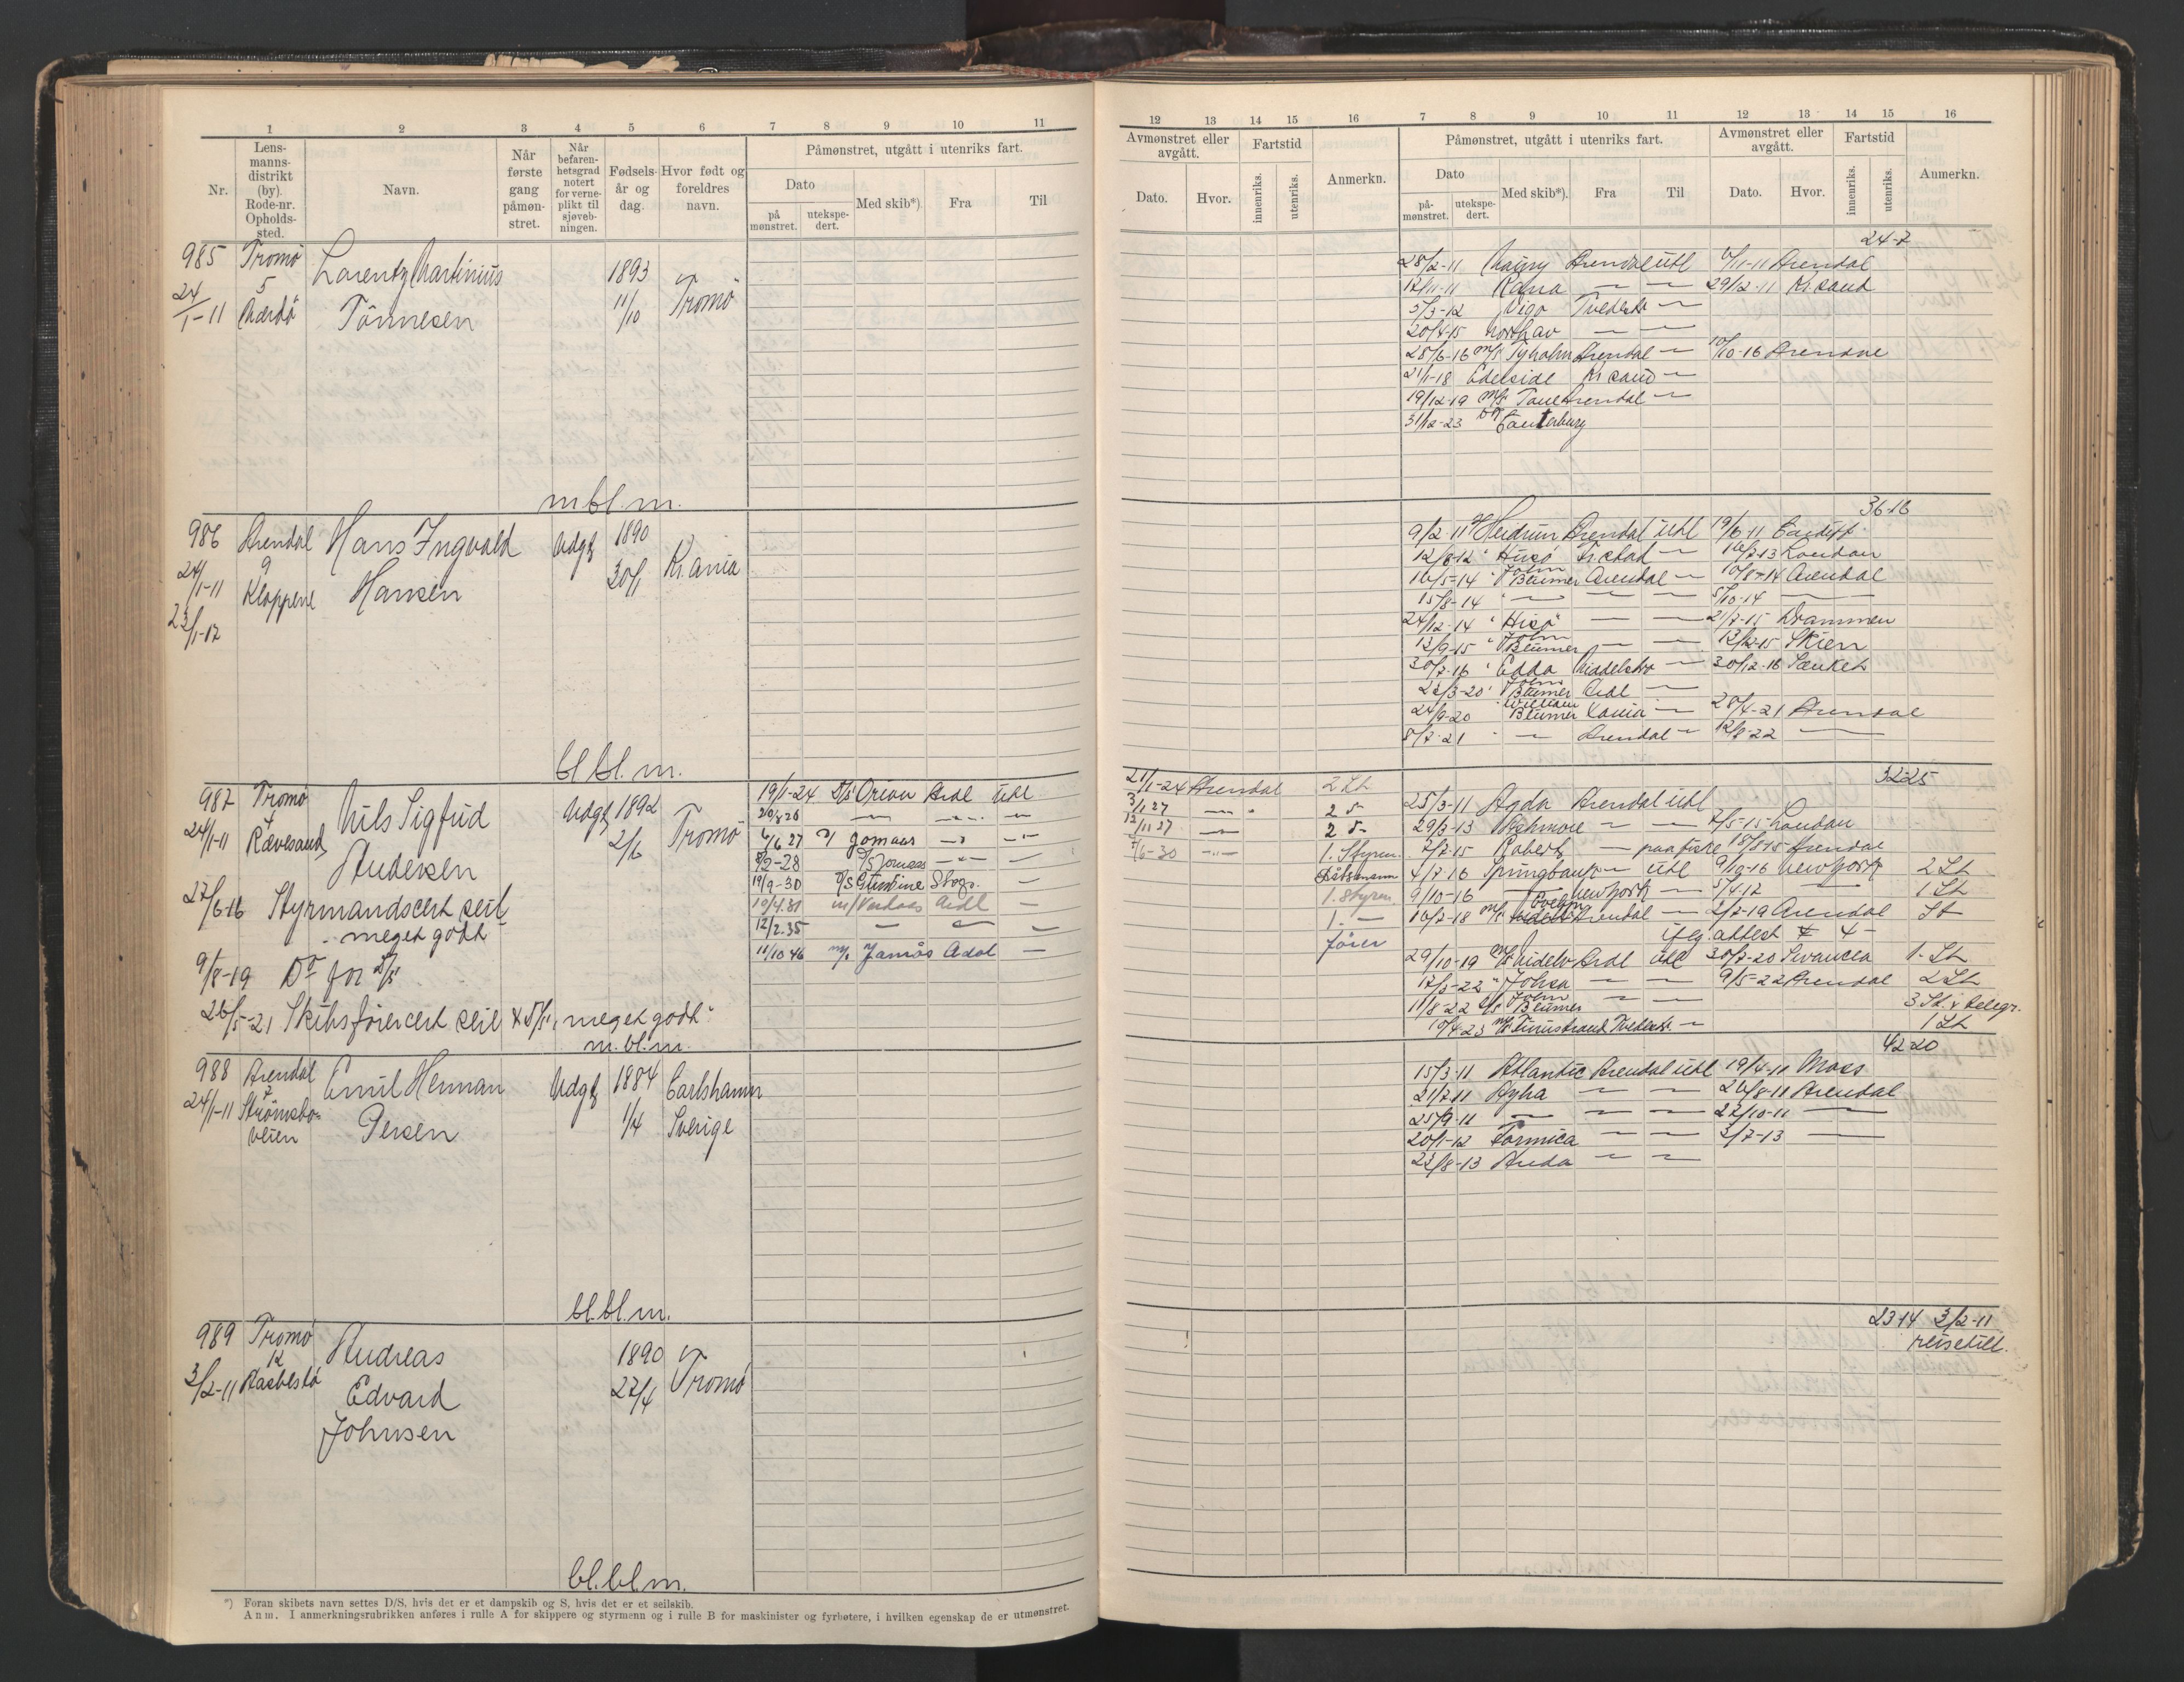 1 2 3 4 5 6 7 8 9 10 11
Nr.
Lens-
manns-
distrikt
(by).
Rode-nr.
Opholds-
sted.
Navn.
Når
første
gang
påmøn-
stret.
Når
befaren-
hetsgrad
notert
for verne-
plikt til
sjøveb-
ningen.
Fødsels-
år og
dag.
Hvor født og
foreldres
navn.
Påmønstret, utgått i utenriks fart.
Dato
på
mønstret.
utekspe-
dert.
Med skib*).
Fra
Til
985 Tromø Lorentz Martinius 1893
24/1-11 5 Tønnesen 11/10 Tromø
m bl. m.
986 Arendal Hans Ingvald Udgt 1890
24/1-11 9 Kloppene Hansen 30/1 Kr.ania
23/1-17
bl. bl. m.
987 Tromø Nils Sigfrid Udgt 1892 Tromø
24/1-11 Rævesand Andersen 2/6
27/6-16 Styrmandscert seil
meget godt
9/8-19 Do for D/S
26/5-21 Skibsførercert seil & D/S "meget godt"
m. bl. m.
19/1-24 D/S Orion Ardl Utl
20/8 26
6/6 27 Jomaas
8/2-28 D/S Jomaas
19/9-30
10/4.31 Ardl
12/2.35
11/10 46 Adal
988 Arendal Emil Herman Udgt 1884 Carlshamn
24/1-11 Strømsbo-
veien Persen 1/4 Sverige
bl. bl. m.
989 Tromø Andreas 1890
3/2-11 12 Edvard 27/4 Tromø
Johnsen
bl. bl. m.
*) Foran skibets navn settes D/S, hvis det er et dampskib og S, hvis det er et seilskib.
Anm. I anmerkningsrubrikken anføres i rulle A for skippere og styrmenn og i rulle B for maskinister og fyrbøtere, i hvilken egenskap de er utmønstret.
12 13 14 15 16 7 8 9 10 11 12 13 14 15 16
Avmønstret eller
avgått.
Fartstid
Dato.
Hvor.
innenriks.
utenriks.
Anmerkn.
Påmønstret, utgått i utenriks fart.
Dato
på-
mønstret.
utekspe-
dert.
Med skib*).
Fra
Til
Avmønstret eller
avgått.
Dato.
Hvor.
Fartstid
innenriks.
utenriks.
Anmerkn.
24-7
28/2-11 Arendal Utl 6/11-11 Arendal
12/11-11 29/12-11 Kr.sand
5/3-12 Vigo Tvedestr
20/4-15
28/6-16 m/S Tyholm Arendal 10/10-16 Arendal
21/1-18 Ederside Kr.sand
19/12-19 Arendal
31/12-23 Canterbury
36-16
9/2-11 Heidrun Arendal Utl 19/6-11 Cardiff
12/8-12 Hisø 16/7-13 London
16/5-14 John Blumer Arendal 10/8-14 Arendal
15/8-14 5/10-14
24/12-14 Hisø 21/7-15 Drammen
13/9-15 John Blumer 13/12-15 Skien
30/7-16 Edda 30/12-16 Senket
22/3-20 John Blumer Ardl
24/9-20 William Blumer Kania 28/4-21 Arendal
8/7-21 Arendal 12/8-22
32-25
21/1-24 Arendal 2 St
3/1 27 2 S
12/11 27 2 S
7/6-30 1. Styrm.
Båtsmann
1. Styrm.
1.
fører
25/3-11 Agda Arendal Utl
29/3-13 7/5-15 London
7/7-15 Robert paa fiske 18/8-15 Arendal
4/7-16 Springbank Utl 9/10-16 New York 2 St
9/10-16 New York 5/4-17 1 St
16/7-18 Arendal 2/7-19 Arendal St
iflg. attest 4
29/10-19 Ardl Utl 30/7-20 Swansea 1. St
17/3-22 Johsa 9/5-22 Arendal 2 St
11/8-22 John Blumer 3 St. & telegr.
10/4-23 Furustrand Tvedestr. 1 St
42-20
15/3-11 Atlantic Arendal Utl 19/4-11 Moss
21/7-11 26/8-11 Arendal
25/9-11 27/10-11
20/1-12 Formica 3/7-13
22/8-13 Anda
23-14 3/2-11
reisetill.